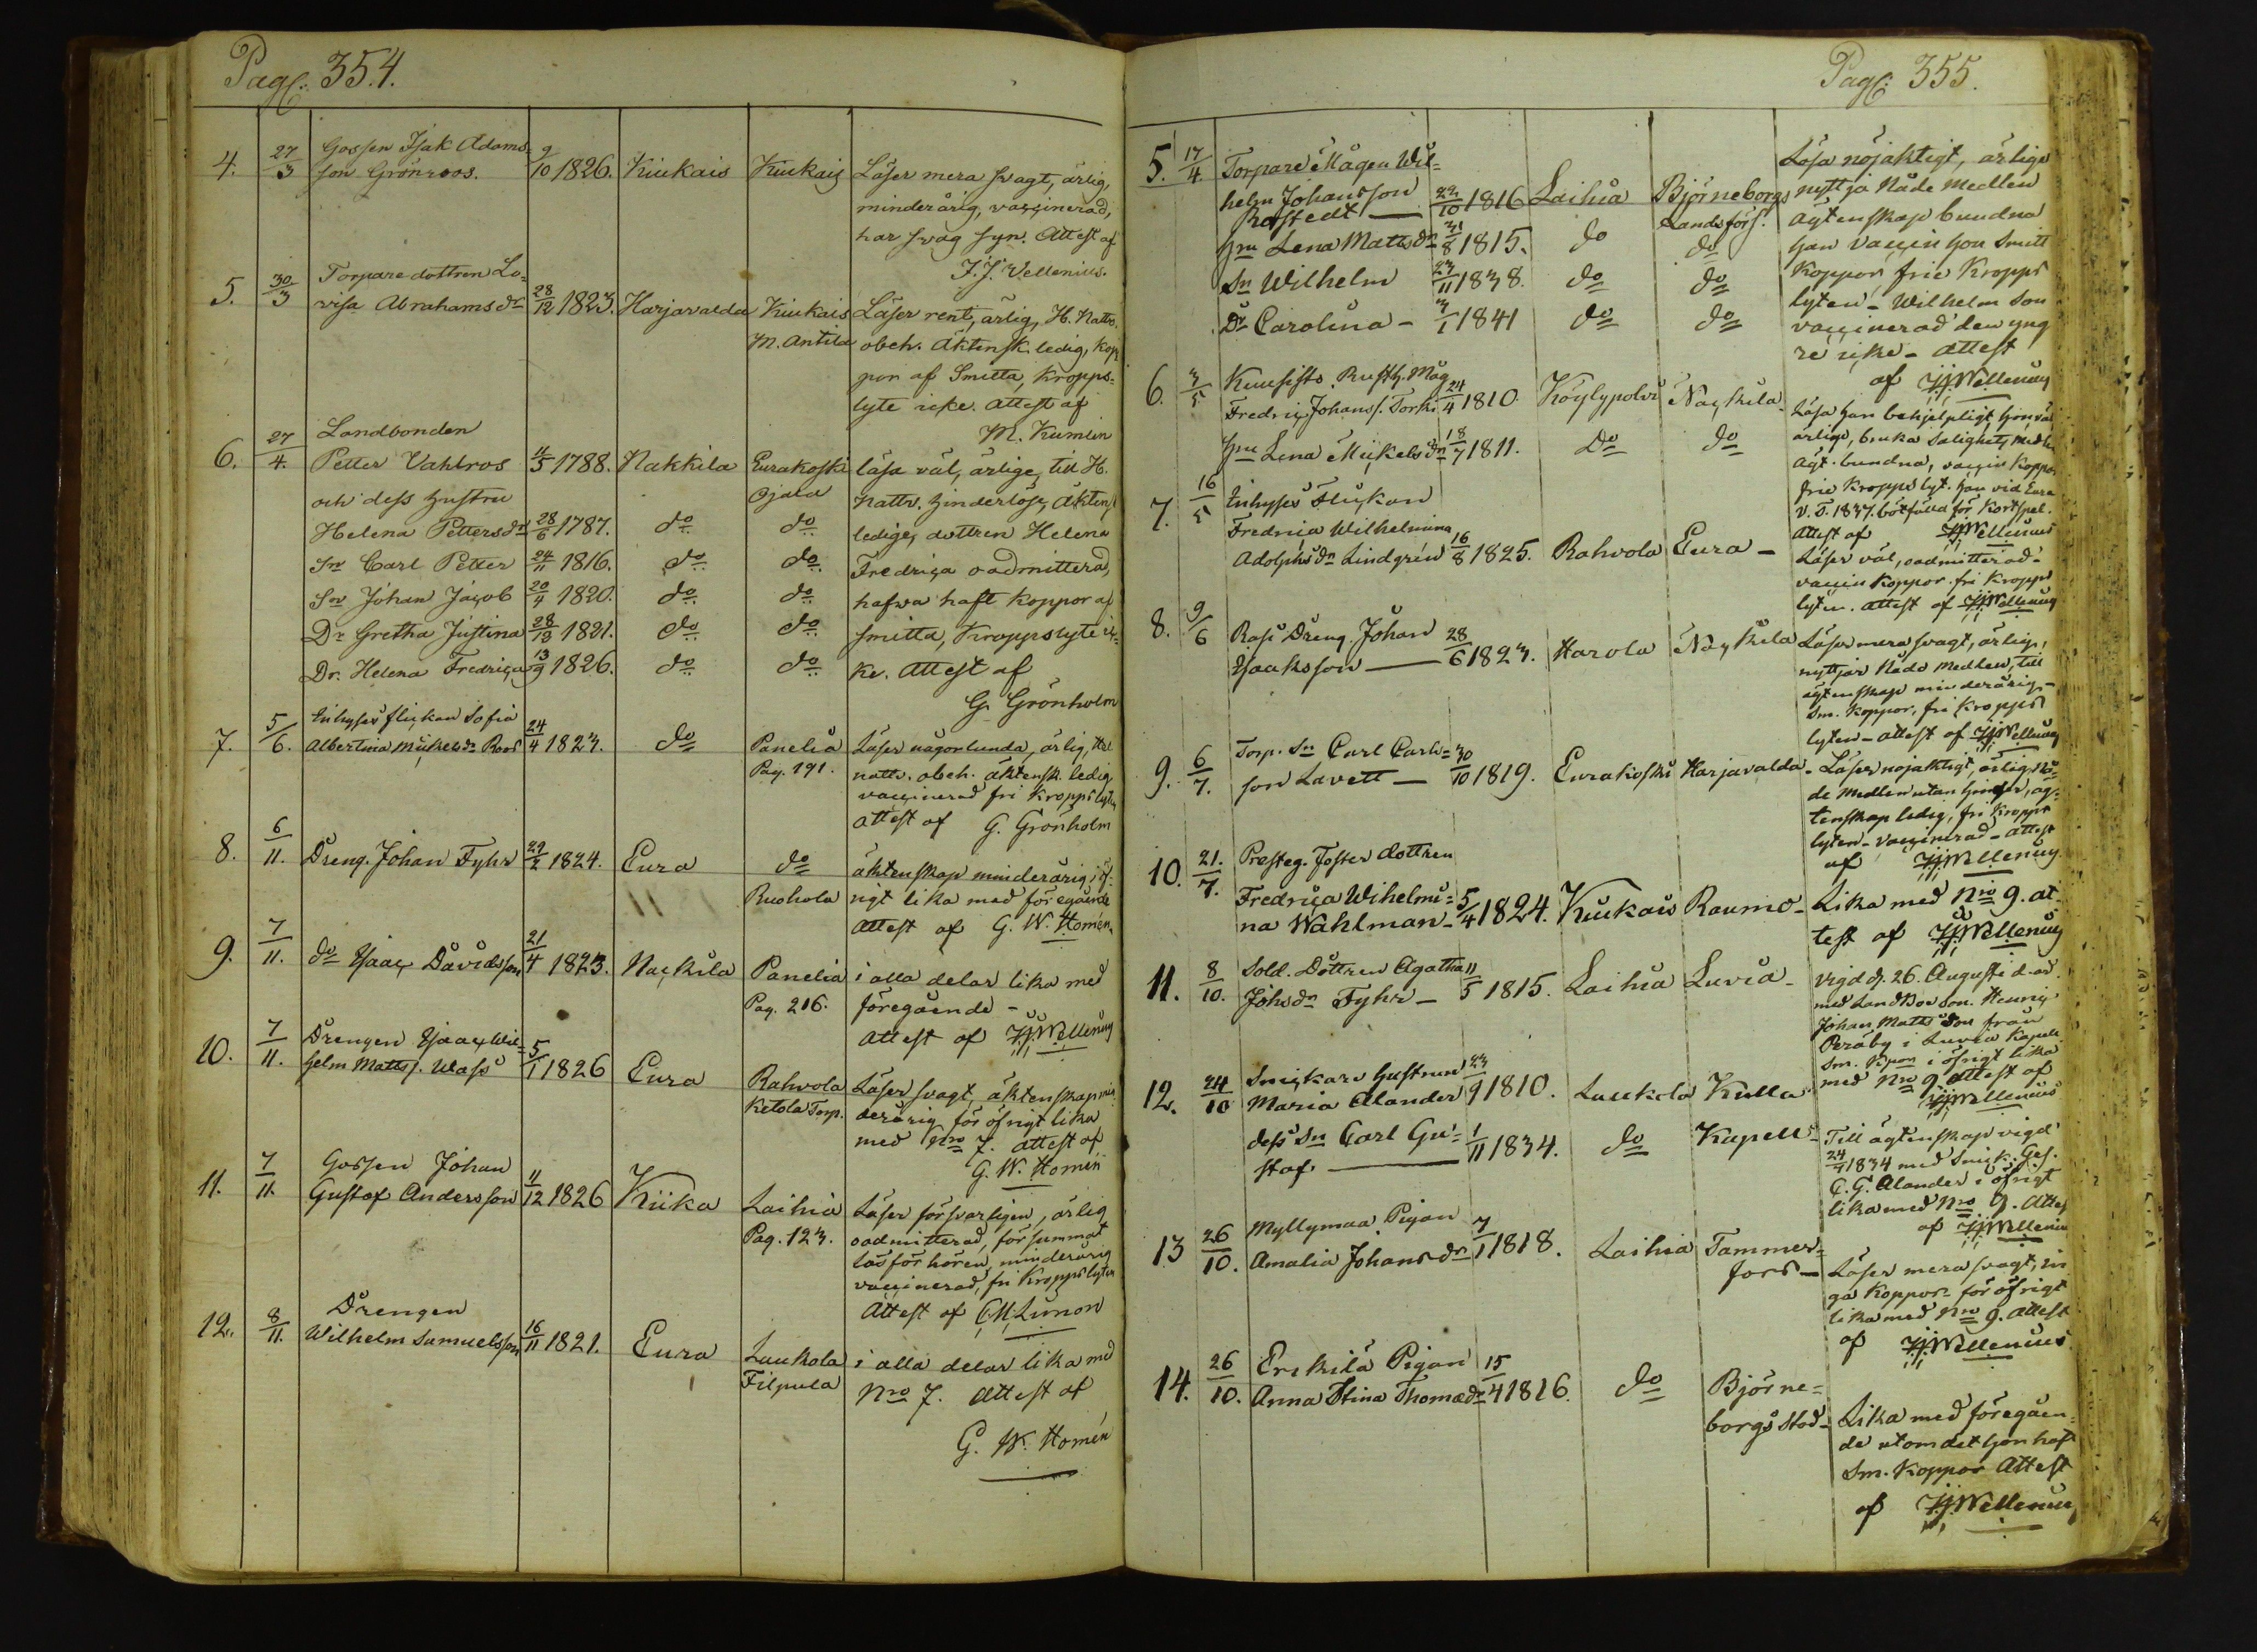 Pag: 354.
4. 27/3 Gossen Isak Adams-
son Grönroos. 9/10 1826. Kiukais Kiukais Läser mera svagt, ärlig,
minderårig, vaccinerad,
har svag syn. Attest af
J. J. Vellenius.
5. 30/3 Torpare dottren Lo-
visa Abrahamsdr 28/12 1823. Harjavalda Kiukais Läser rent, ärlig, H. Nattv.
M. Antila obeh. Äktensk. ledig, kop
por af Smitta, Kropps-
lyte icke. Attest af
M. Kumlin
6. 27/4. Landbonden
Petter Vahlros 11/5 1788. Nakkila Eurakoski läsa väl, ärlige, till H.
och dess hustru Ojala Nattv. hinderlöse, Äktens
Helena Pettersdr 28/6 1787. do do ledige, dottren Helena
Sn Carl Petter 24/11 1816. do do Fredrica oadmitterad,
Sn Johan Jacob 20/4 1820. do do hafwa haft Koppor af
Dr Gretha Justina 28/12 1821. do do smitta, Kroppslyte ic-
Dr. Helena Fredrica 13/9 1826. do do ke. Attest af
G. Grönholm
7. 5/6. Inhyses flickan Sofia
Albertina Mickelsdr Roos 24/4 1823. do Panelia Läser någorlunda, ärlig, Hel
Pag. 191. nattv. obeh. äktensk. ledig
vaccinerad fri Kroppslyte
attest af G. Grönholm
8. 6/11. Dreng. Johan Fyhr 29/2 1824. Eura do äktenskap minderårig, öf-
Ruohola rigt lika med föregående
Attest af G. W. Homén
9. 7/11. do Isaac Davidsson 21/4 1823. Nackila Panelia i alla delar lika med
Pag. 216. föregående -
Attest af J. J. Wellenius
10. 7/11. Drengen Isaac Wil-
helm Mattss. Wass 5/1 1826 Eura Rahvola Läser svagt, äktenskap min
Ketola Torp. derårig för öfrigt lika
med Nro 7. attest af
G. W. Homén
11. 7/11. Gossen Johan
Gustaf Andersson 11/12 1826 Kiika Laihia Läser försvarligen, ärlig
Pag. 123. oadmitterad, försummat
Läsförhören, minderårig
vaccinerad, fri Kroppslyten
Attest af C. M. Limon
12. 8/11. Drengen
Wilhelm Samuelsson 16/11 1821. Eura Laukola i alla delar lika med
Filpula Nro 7. Attest af
G. W. Homén
Pag: 355.
5. 17/4. Torpare Mågen Wil- Läsa nöjaktigt, ärliga
helm Johansson 22/10 1816 Laihia Björneborgs nyttja Nåde Medlen
Rostedt Landsförs. ägtenskap bundna
hu Lena Mattsdr 31/8 1815. do do han vaccin hon Smitt
Sn Wilhelm 23/11 1838. do do Koppor, frie Kropps
Dr Carolina - 3/1 1841 do do lyten - Wilhelm Son
vaccinerad den yng
re icke - attest
af J. J. Wellenius
6. 3/5 Kuusisto Rusth. Måg
Fredric Johanss. Torki 24/4 1810. Köylypolvi Nackila Läsa han behjelpligt hon väl
hu Lena Mickelsdr 18/7 1811. Do do ärlige, bruka Salighets medlen
ägt. bundna, vaccin Koppor
frie Kropps lyt. han vid Eura
V. T. 1837. bötfälld för Kortspel.
Attest af J. J. Wellenius
7. 16/5 Inhyses Flickan
Fredrica Wilhelmina
Adolphsdr Lindgrén 16/8 1825. Rahvola Eura - Läser väl, oadmitterad-
vaccin Koppor. fri Kropps
lyten. attest af J. J. Wellenius
8. 9/6 Rasi Dreng. Johan
Isaaksson 28/6 1823. Harola Nackila Läser mera svagt, ärlig,
nyttjar Nåde Medlen, till
ägtenskap minderårig,
Sm. Koppor, fri Kropps
lyten - attest af J. J. Wellenius
9. 6/7. Torp. Sn Carl Carls-
son Lavett 30/10 1819. Eurakoski Harjavalda - Läser nöjaktigt, ärlig, Nå-
de Medlen utan hinder, äg-
tenskap ledig, fri Kropps
lyten - vaccinerad - attest
af J. J. Wellenius
10. 21/7. Presteg. Foster dottren
Fredrica Wihelmi-
na Wahlman - 5/4 1824. Kiukais Raumo - Lika med Nro 9. at-
test af J. J. Wellenius
11. 8/10. Sold. Dottren Agatha
Johsdr Fyhr - 11/5 1815. Laihia Luvia - Vigd d. 26. Augusti d. år
med Landbo Son. Henric
Johan Matts Son från
Peräby i Luvia Kapell
Sm. Kpor i öfrigt lika
med Nro 9 attest af
J. J. Wellenius
12. 24/10 Snickare hustrun
Maria Alander 23/9 1810. Laukola Kulla
dess Sn Carl Gu-
staf. 1/11 1834. do Kapell - Till ägtenskap vigd
24/4 1834 med Snick. Ges.
C. G. Alander i öfrigt
lika med Nro 9. Attes
af J. J. Wellenius
13 26/10. Myllymaa Pigan
Amalia Johansdr 7/1 1818. Laihia Tammer-
fors - Läser mera svagt, in
ga Koppor för öfrigt
lika med Nro 9. attest
af J. J. Wellenius
14. 26/10. Erckilä Pigan
Anna Stina Thomædr 15/4 1816. do Björne-
borgs stad - Lika med föregåen-
de utom det hon haft
Sm. Koppor Attest
af J. J. Wellenius